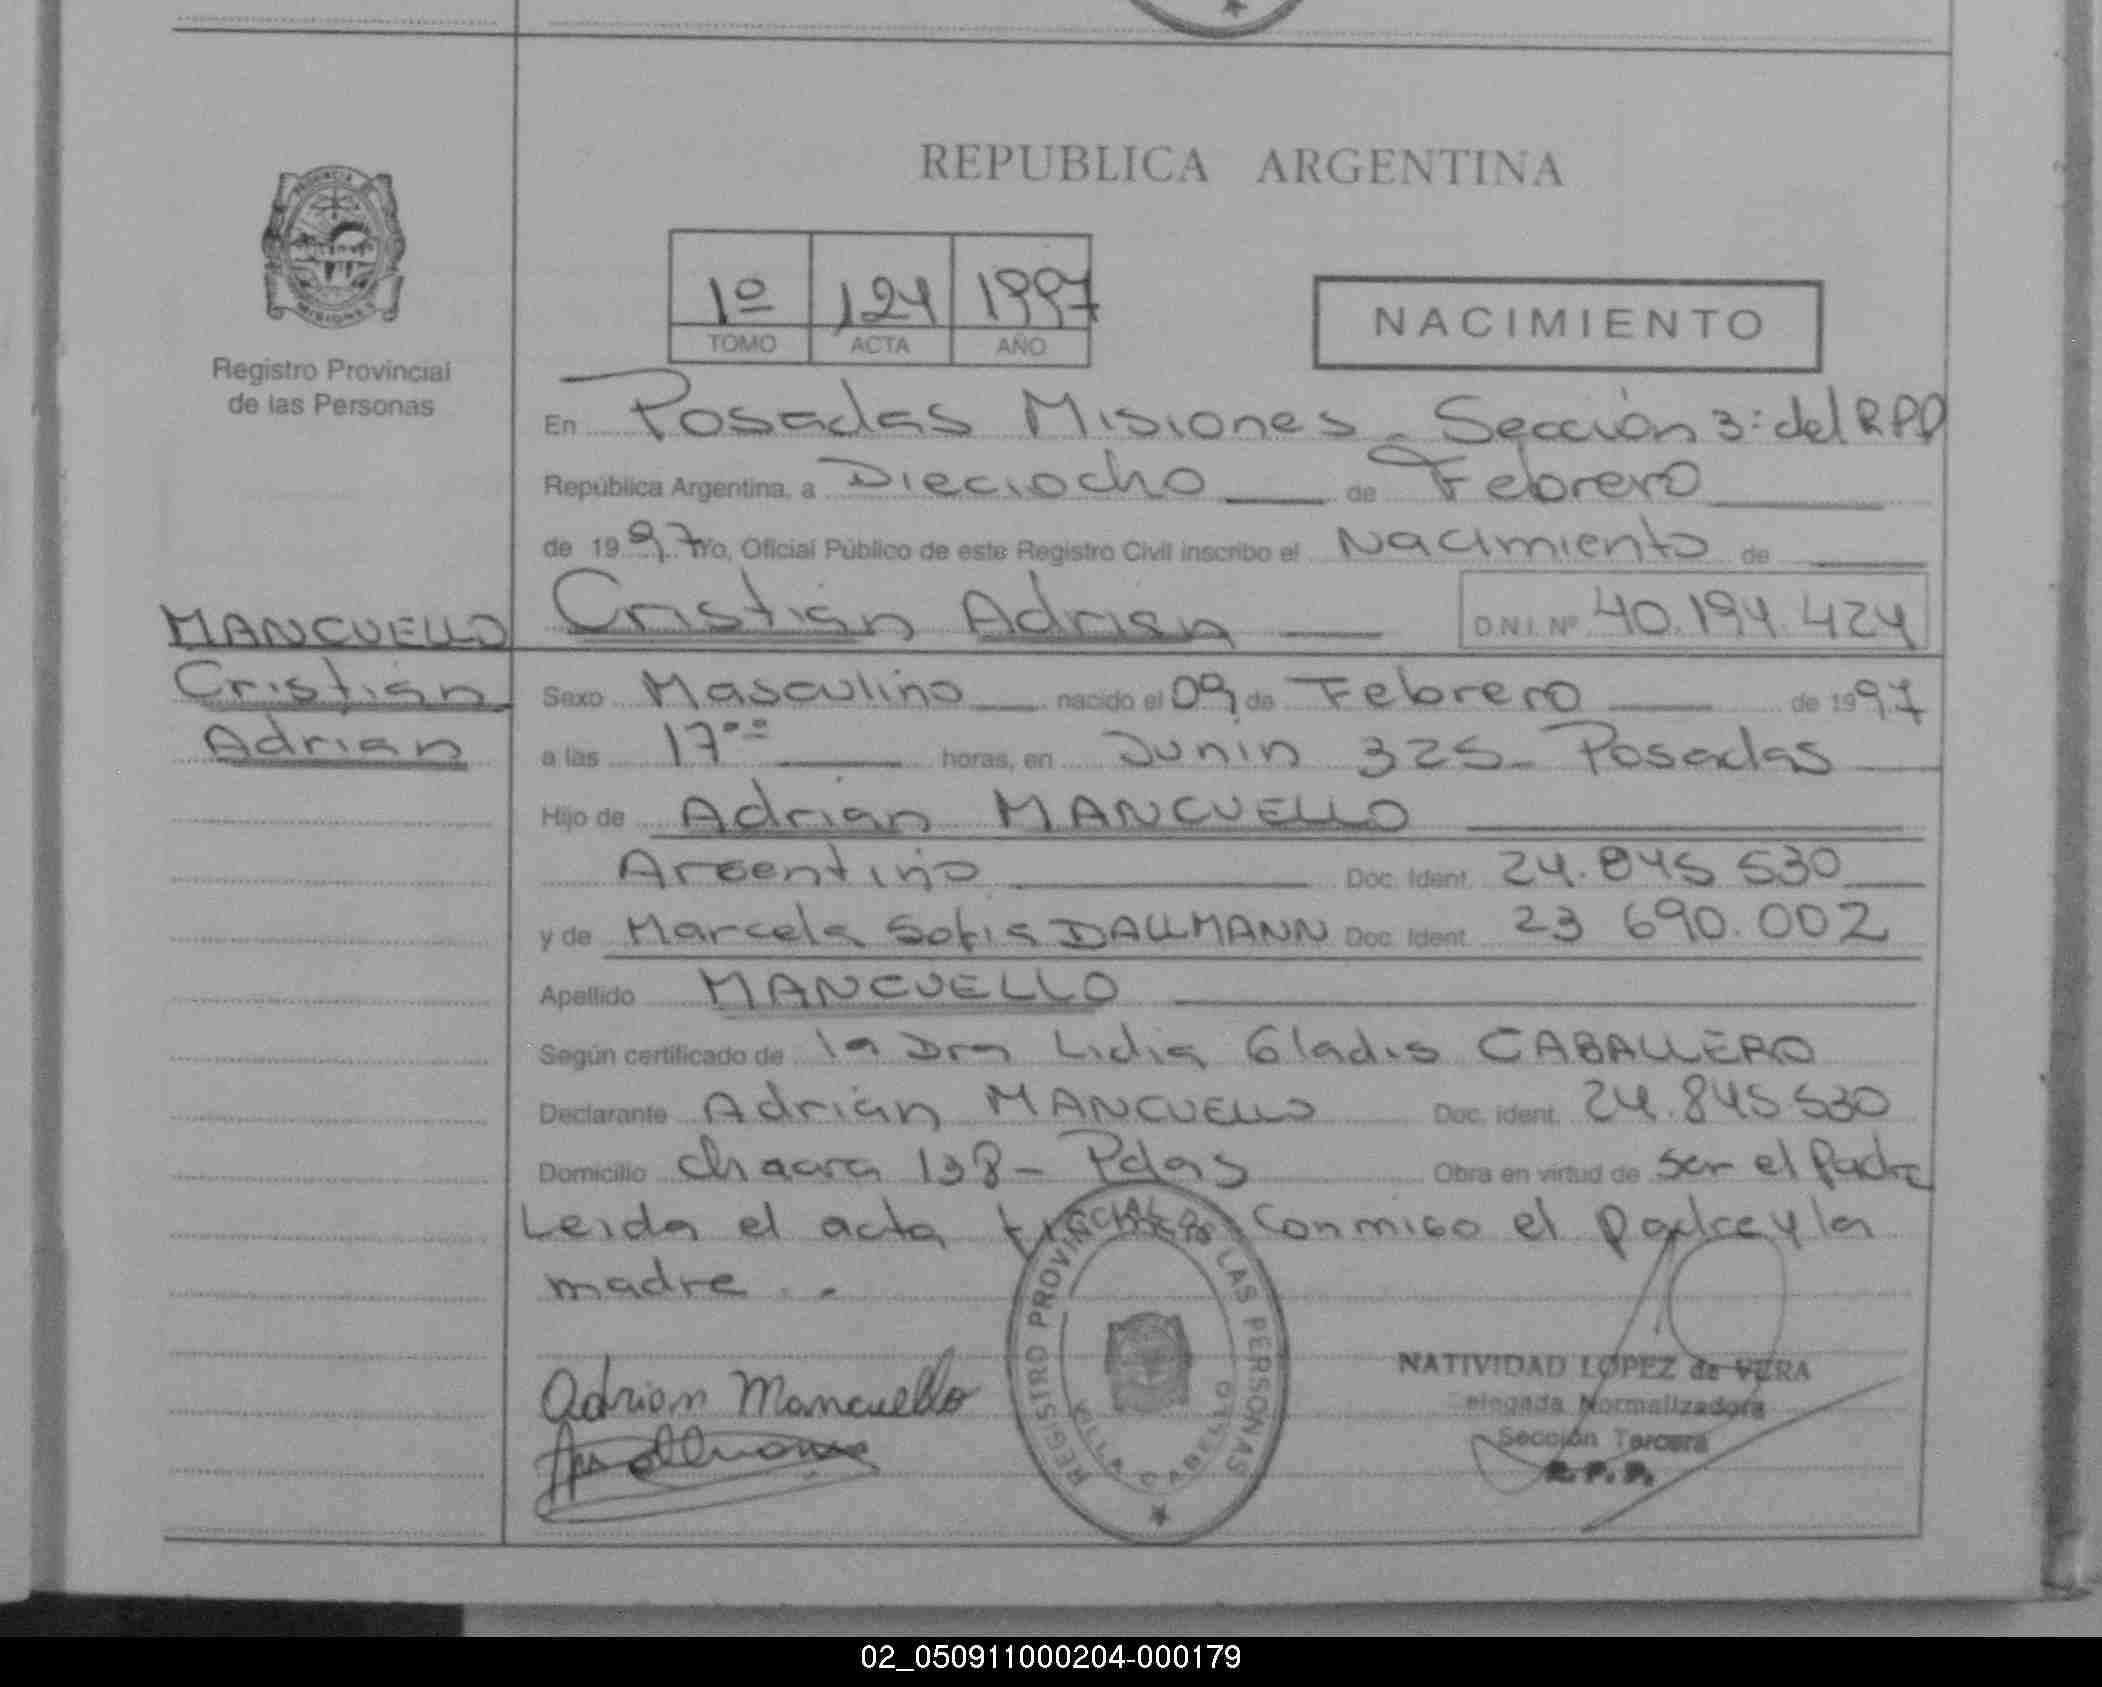 REPUBLICA ARGENTINA
PROVINCIA
MISIONES
Registro Provincial
de las Personas
1º 124 1997
TOMO ACTA AÑO
NACIMIENTO
En Posadas Misiones - Sección 3: del RPP
República Argentina, a Dieciocho de Febrero
de 1997 Yo, Oficial Público de este Registro Civil inscribo el Nacimiento de
MANCUELLO
Cristián
Adrián
Cristián Adrián D.N.I. Nº 40.194.424
Sexo Masculino nacido el 09 de Febrero de 1997
a las 17 ºº horas, en Junin 325 - Posadas
Hijo de Adrián MANCUELLO
Argentino Doc. Ident. 24.845 530
y de Marcela Sofia DALLMANN Doc. Ident. 23 690.002
Apellido MANCUELLO
Según certificado de la Dra Lidia Gladis CABALLERO
Declarante Adrián MANCUELLO Doc. ident. 24.845.530
Domicilio chacra 138 - Pdas Obra en virtud de ser el Padre
Leida el acta conmigo el padre y la
madre . -
Adrian Mancuello
REGISTRO PROVINCIAL DE LAS PERSONAS
VILLA CABELLO
NATIVIDAD LOPEZ de VERA
elegada Normalizadora
Sección Tercera
R.P.P.
02_050911000204-000179